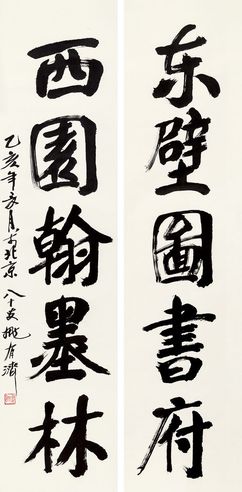 东壁图書府
西園翰墨林
乙亥年亥月于北京
八十叟